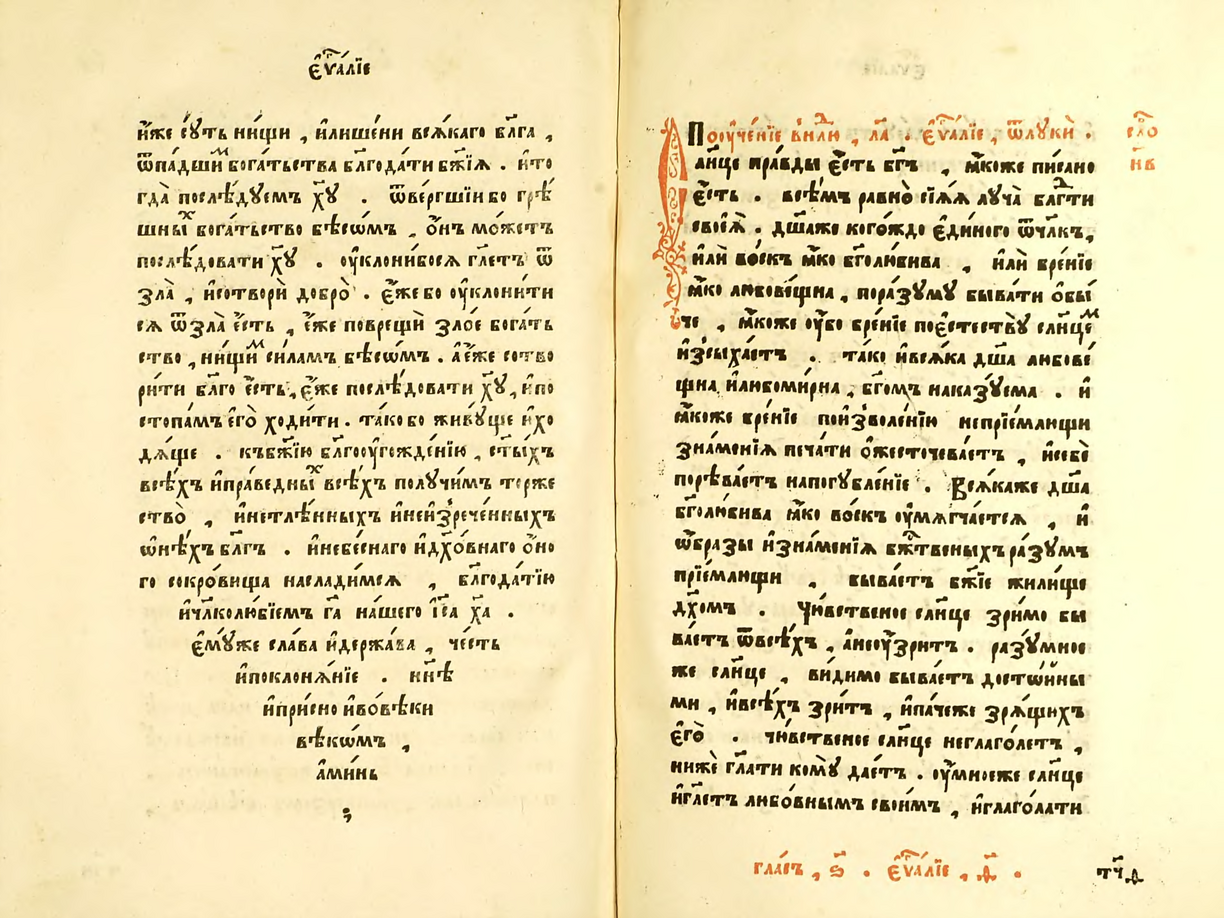 єѵ҃алїе
и҆́же сꙋ́ть ни́щи , и҆лише́ни всѧ́каго бл҃га ,
ѿпа́дши богатьства бл҃года́ти бж҃їѧ . и҆ то
гда̀ послѣ́дꙋемъ хꙋ҃ . ѿве́ргшїи бо грѣ
шны бога́тьство бѣсѡ́мъ , ѻ҆́нъ мо́жетъ
послѣ́довати хꙋ҃ . ѹ҆клони́бо сѧ гл҃етъ ѿ
зла̀ , и҆сотворѝ добро̀ . є҆́же бо ѹ҆клони́ти
сѧ ѿзла̀ є҆́сть , є҆́же повре́щи зло́е богать
ство , ни́щи си́ламъ бѣсѡ́мъ . а҆є҆́же сотво
ри́ти бл҃го є҆́сть , є҆́же послѣ́довати хꙋ҃ , и҆по
стопа́мъ є҆гѡ̀ ходи́ти . та́ко бо живꙋ́ще и҆хо
дѧ́ще . къбж҃їю бл҃гоѹ҆гожде́нїю , ст҃ы́хъ
всѣ́хъ и҆пра́ведны всѣ́хъ полꙋчи́мъ торже
ство̀ , и҆нетлѣ́нныхъ и҆неи҆зрече́нныхъ
ѡ҆нѣ́хъ бл҃гъ . и҆небе́снаго и҆дх҃о́внаго ѻ҆но
го сокро́вища наслади́мсѧ , бл҃года́тїю
и҆чл҃колю́бїемъ га҃ на́шего і҆са҃ ха҃ .
є҆мꙋ́же сла́ва и҆держа́ва , че́сть
и҆поклонѧ́нїе . нн҃ѣ
и҆при́сно и҆во́вѣки
вѣкѡ́мъ ,
а҆ми́нь
Поѹче́нїе внл҃и , ла҃ . є҆ѵ҃а́лїе , ѿлꙋкѝ .
сло
нв
лн҃це пра́вды є҆́сть бг҃ъ , ꙗ҆́коже пи́сано
є҆́сть . всѣ́мъ равно̀ сїѧ́ѧ лꙋча̀ бл҃гти
своеѧ̀ . дш҃а же кого́ждо є҆ди́ного ѿчл҃къ ,
и҆лѝ во́скъ ꙗ҆́ко бг҃олюби́ва , и҆лѝ бре́нїе
ꙗ҆́ко любове́щна , пора́зꙋмꙋ быва́ти ѻ҆бы́
че , ꙗ҆́коже ѹ҆́бо бре́нїе поє҆стествꙋ̀ сл҃нце
и҆зсыха́етъ . та́ко и҆всѧ́ка дш҃а любове́
щна и҆любоми́рна , бг҃омъ нака́зꙋема . и҆
ꙗ҆́коже бре́нїе поизволе́нїю непрїе́млющи
зна́менїѧ печа́ти ѻ҆жесточева́етъ , и҆себѐ
порѣва́етъ напогꙋбле́нїе . Всѧ́ка же дш҃а
бг҃олюби́ва ꙗ҆́ко во́скъ ѹ҆мѧгча́етсѧ , и҆
ѡ҆́бразы и҆зна́менїѧ бж҃твеныхъ ра́зꙋмъ
прїе́млющи , быва́етъ бж҃їе жили́ще
дх҃омъ . Чю́вственое сл҃нце зри́мо бы
ва́етъ ѿвсѣ́хъ , а҆неѹ҆́зрит . ра́зꙋмное
же сл҃нце , ви́димо быва́етъ досто́йны
ми , и҆всѣ́хъ зри́тъ , и҆па́чеже зрѧ́щихъ
є҆го̀ . чю́вственое сл҃нце неглаго́летъ ,
нижѐ гл҃ати комꙋ̀ дае́тъ . ѹ҆́мное же сл҃нце
и҆гл҃етъ любо́внымъ свои́мъ , и҆глаго́лати
гла́съ , ѕ҃ . є҆ѵ҃а́лїе , д҃ .
тч҃д